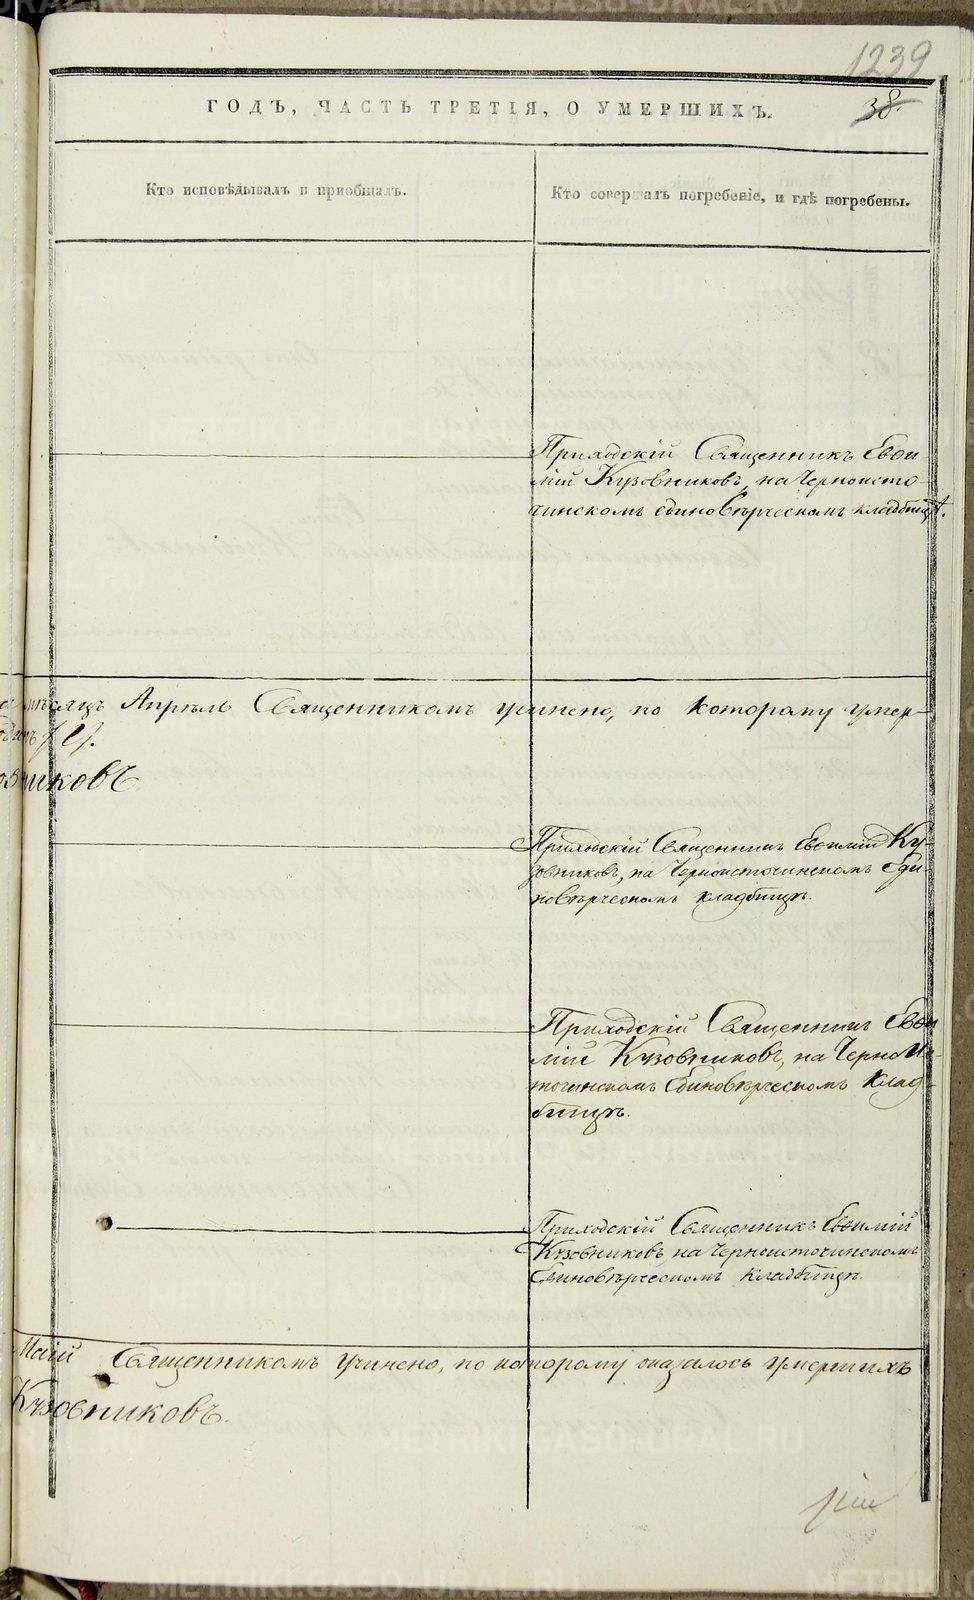 1239
38.
ГОДЪ, ЧАСТЬ ТРЕТІЯ, О УМЕРШИХЪ.
Кто исповѣдывалъ и пріобщалъ.
Кто совершалъ погребеніе, и гдѣ погребены.
Приходскій Священникъ Евѳи
мій Кузовниковъ, на Черноисто-
чинскомъ единовѣрческомъ кладбищѣ.
мѣсяцъ Апрѣль Священникомъ учинено, по которому умер-
никовъ
Приходскій Священникъ Евѳимій Ку-
зовниковъ, на Черноисточинскомъ Еди-
новѣрческомъ кладбищѣ.
Приходскій Священникъ Евѳи
мій Кузовниковъ, на Черноис-
точинскомъ Единовѣрческомъ Клад-
бищѣ.
Приходскій Священникъ Евѳимій
Кузовниковъ, на Черноисточинскомъ
Единовѣрческомъ кладбищѣ.
Маій Священникомъ учинено, по которому оказалось умершихъ
Кузовниковъ.
METRIKI.GASO-URAL.RU